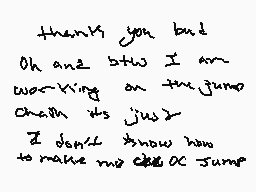 thanks you bud
Oh and btw I am
working on the jump
chain its jus
I don't know how
to make my OC jump